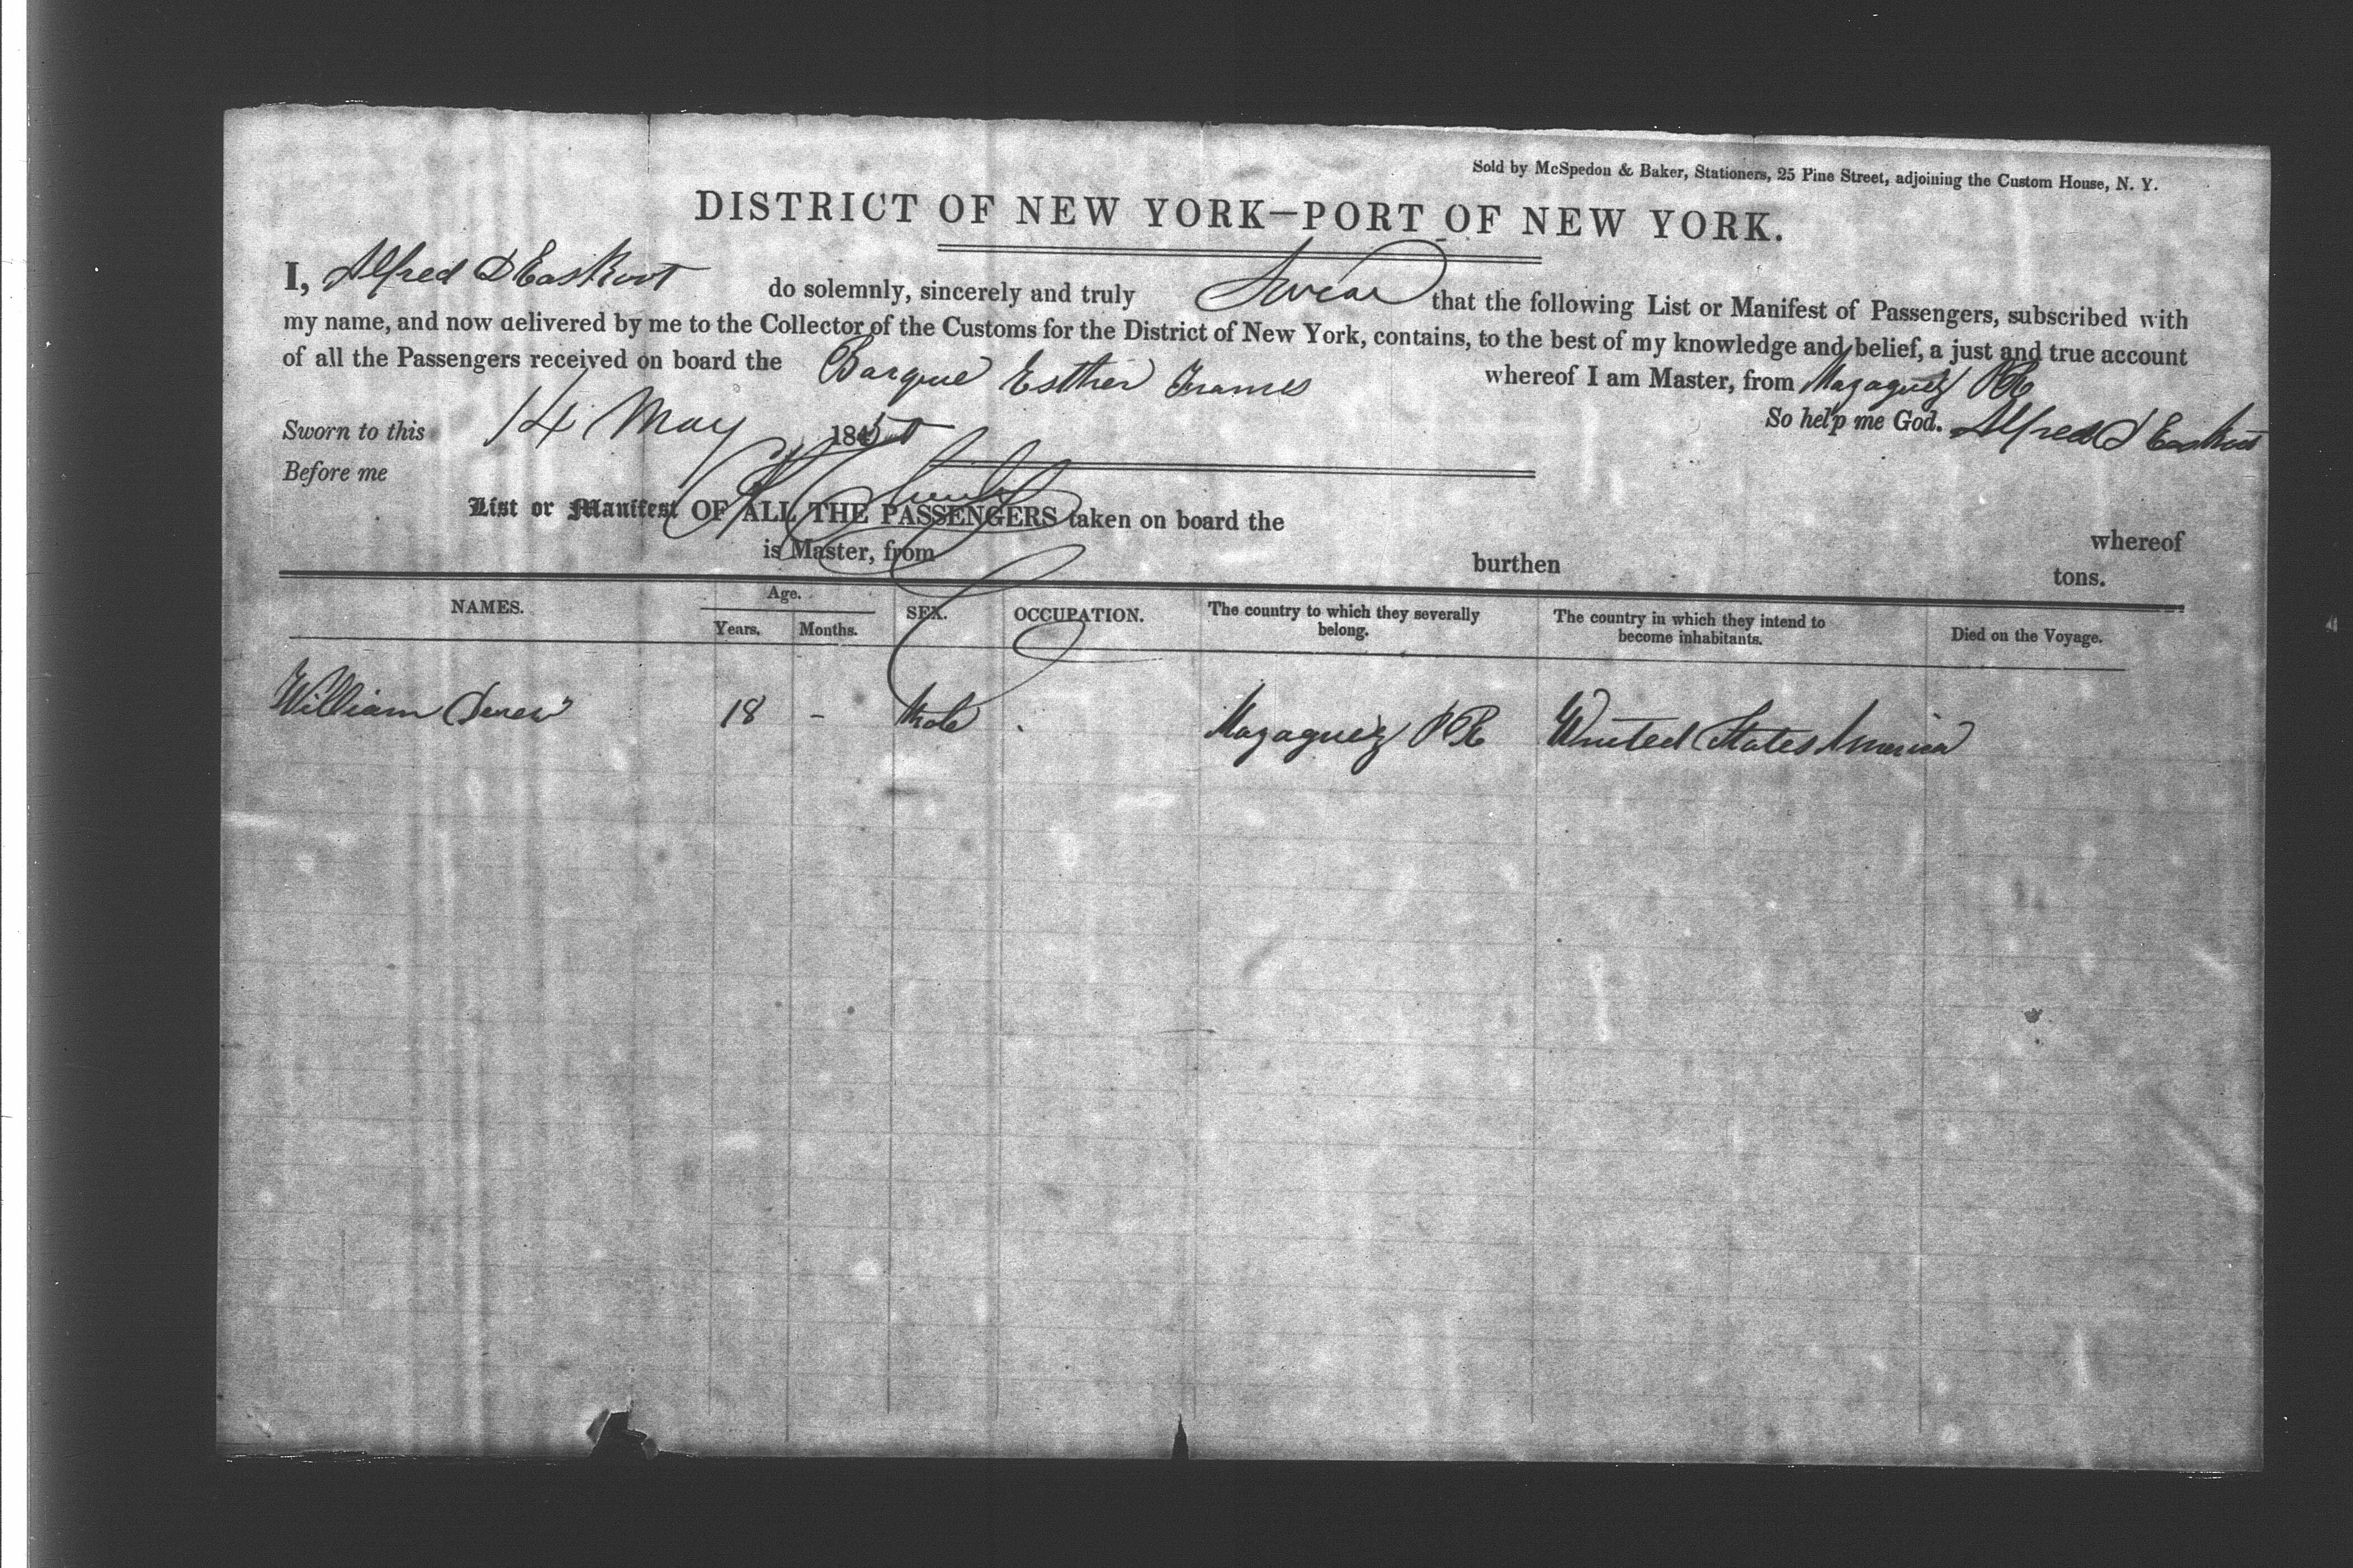 Sold by McSpedon & Baker, Stationers, 25 Pine Street, adjoining the Custom House, N. Y.
DISTRICT OF NEW YORK—PORT OF NEW YORK.
I, Alfred D Eastkoot do solemnly, sincerely and truly Swear that the following List or Manifest of Passengers, subscribed with
my name, and now delivered by me to the Collector of the Customs for the District of New York, contains, to the best of my knowledge and belief, a just and true account
of all the Passengers received on board the Barque Esther Frames whereof I am Master, from Mayaguez PR
So help me God. Alfred D
Sworn to this 14 May 1850
Before me
List or Manifest OF ALL THE PASSENGERS taken on board the whereof
is Master, from burthen tons.
NAMES. Age. Years. Months. SEX. OCCUPATION. The country to which they severally belong. The country in which they intend to become inhabitants. Died on the Voyage.
William 18 - Male Mayaguez PR United States America